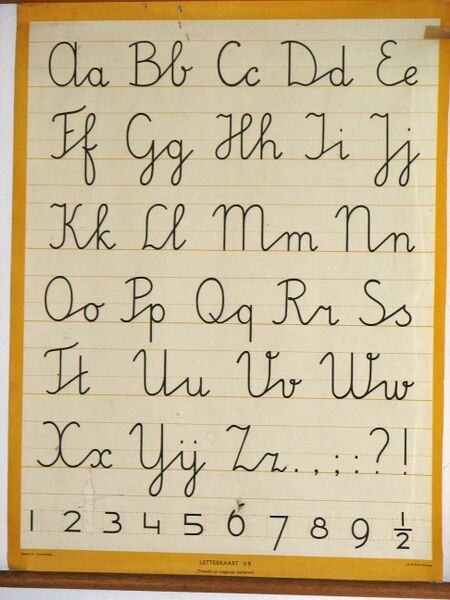 Aa Bb Cc Dd Ee
Ff Gg Hh Ii Jj
Kk Ll Mm Nn
Oo Pp Qq Rr Ss
Tt Uu Vv Ww
Xx Yij Zz . , ; : ? !
1 2 3 4 5 6 7 8 9 ½
LETTERKAART II B
(Tweede en volgende leerjaren)